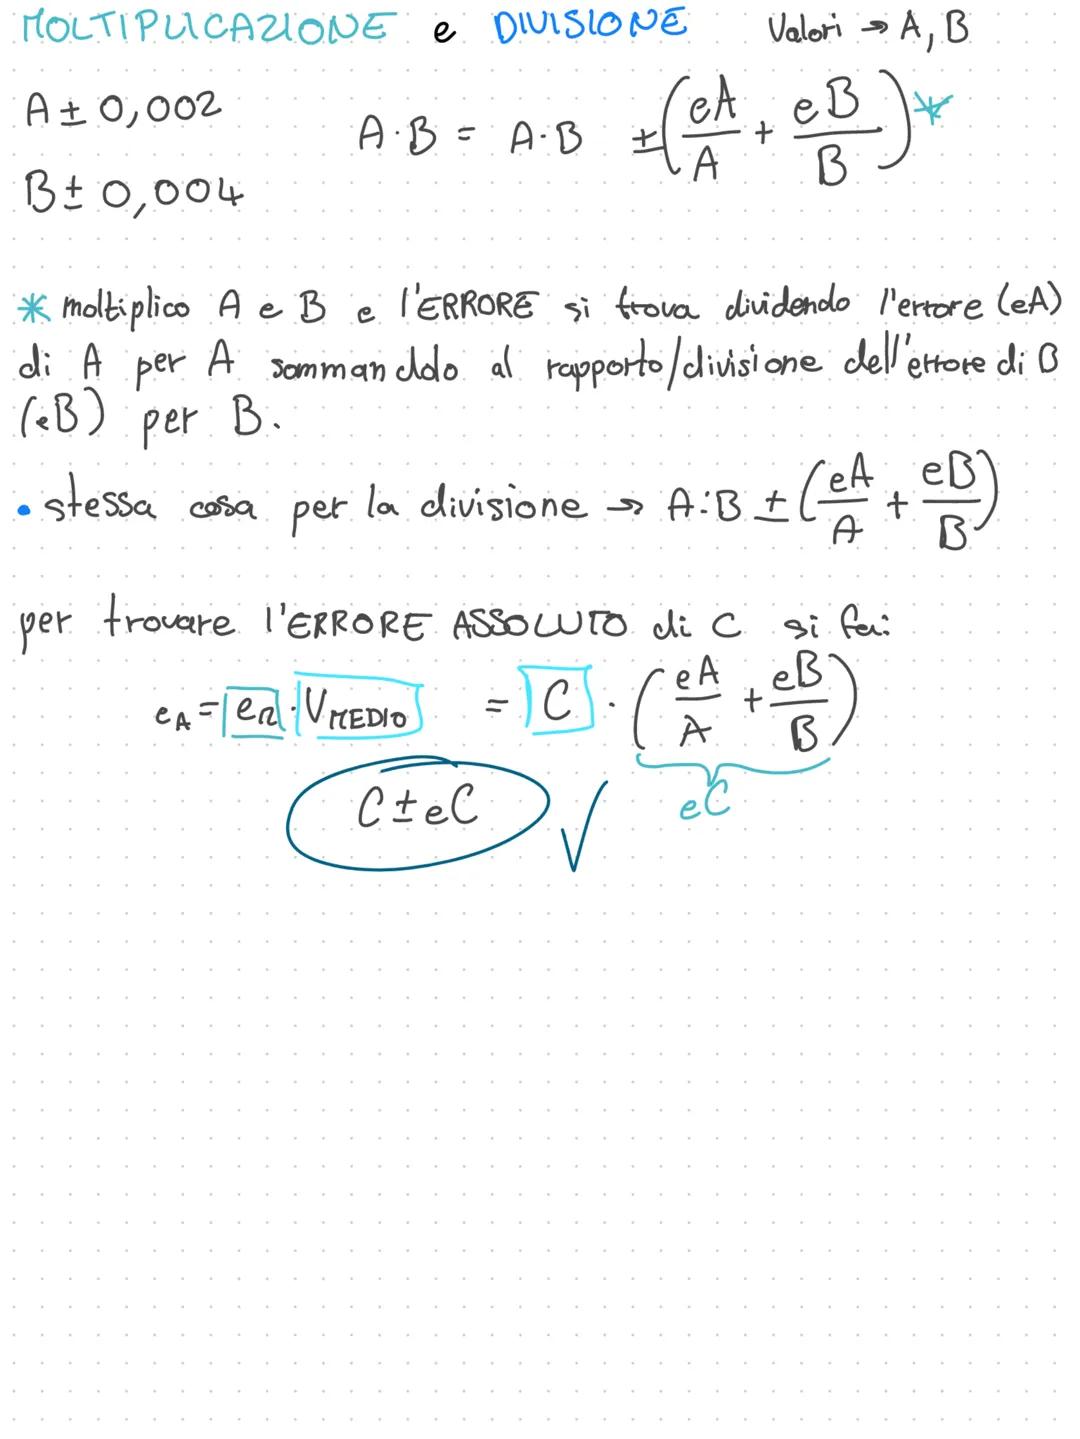 MOLTIPLICAZIONE e DIVISIONE Valori → A, B
A ± 0,002
A·B = A·B ±(eA/A + eB/B)*
B ± 0,004
* moltiplico A e B e l'ERRORE si trova dividendo l'errore (eA)
di A per A sommanddo al rapporto/divisione dell'errore di B
(eB) per B.
• stessa cosa per la divisione → A:B ± (eA/A + eB/B)
per trovare l'ERRORE ASSOLUTO di C si fa:
eA = er · VMEDIO = C · (eA/A + eB/B)
eC
C ± eC ✓